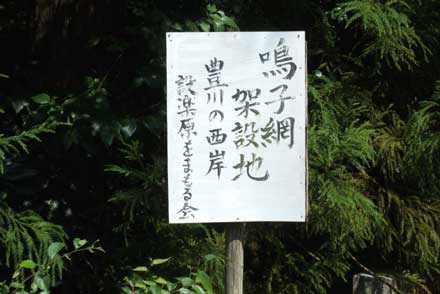 鳴子網
架設地
豊川の西岸
設楽原をまもる会